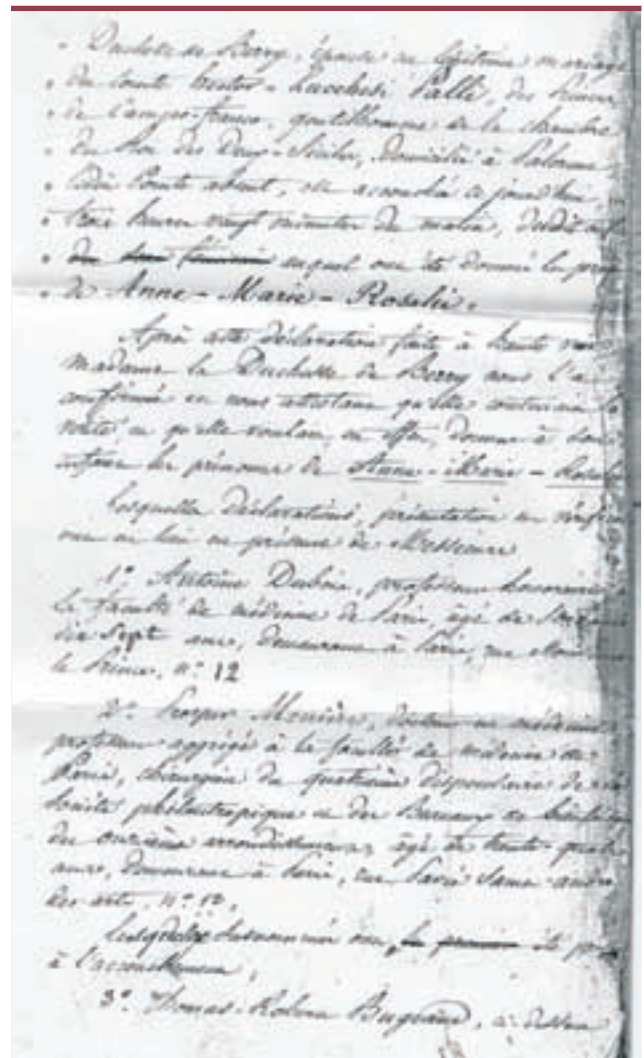 " Duchesse de Berry, épouse en légitime mariage
" du comte hector-Lucchesi Palli, des Princes
" de Campo-franco, gentilhomme de la chambre
" du Roi des Deux-Siciles, domicilié à Palerme
" ledit Comte absent, est accouchée ce jourd'hui
" trois heures vingt minutes du matin, d'un enfant
" du sexe féminin auquel ont été donné les pré
" de Anne-Marie-Rosalie.
Après cette déclaration faite à haute voix
madame la Duchesse de Berry nous l'a
confirmée en nous attestant qu'elle contenait la
vérité, et qu'elle voulait, en effet, donner à son
enfant les prénoms de Anne-Marie-Rosalie
Lesquelles déclarations, présentation et vérific
ont eu lieu en présence de Messieurs
1° Antoine Dubois, professeur honoraire
la faculté de médecine de Paris, âgé de soixante
dix sept ans, demeurant à Paris, rue Monsieur
le Prince, n° 12
2° Prosper Menière, docteur en médecine
professeur aggrégé à la faculté de médecine de
Paris, chirurgien du quatrième dispensaire de la
société philantropique et du Bureau de bienfais
du onzième arrondissement, âgé de trente-quat
ans, demeurant à Paris, rue Pavée Saint-andré
des arts, n° 12,
Lesquels susnommés ont, le premier été pré
à l'accouchement,
3° Thomas-Robert Bugeaud, ci-dessus